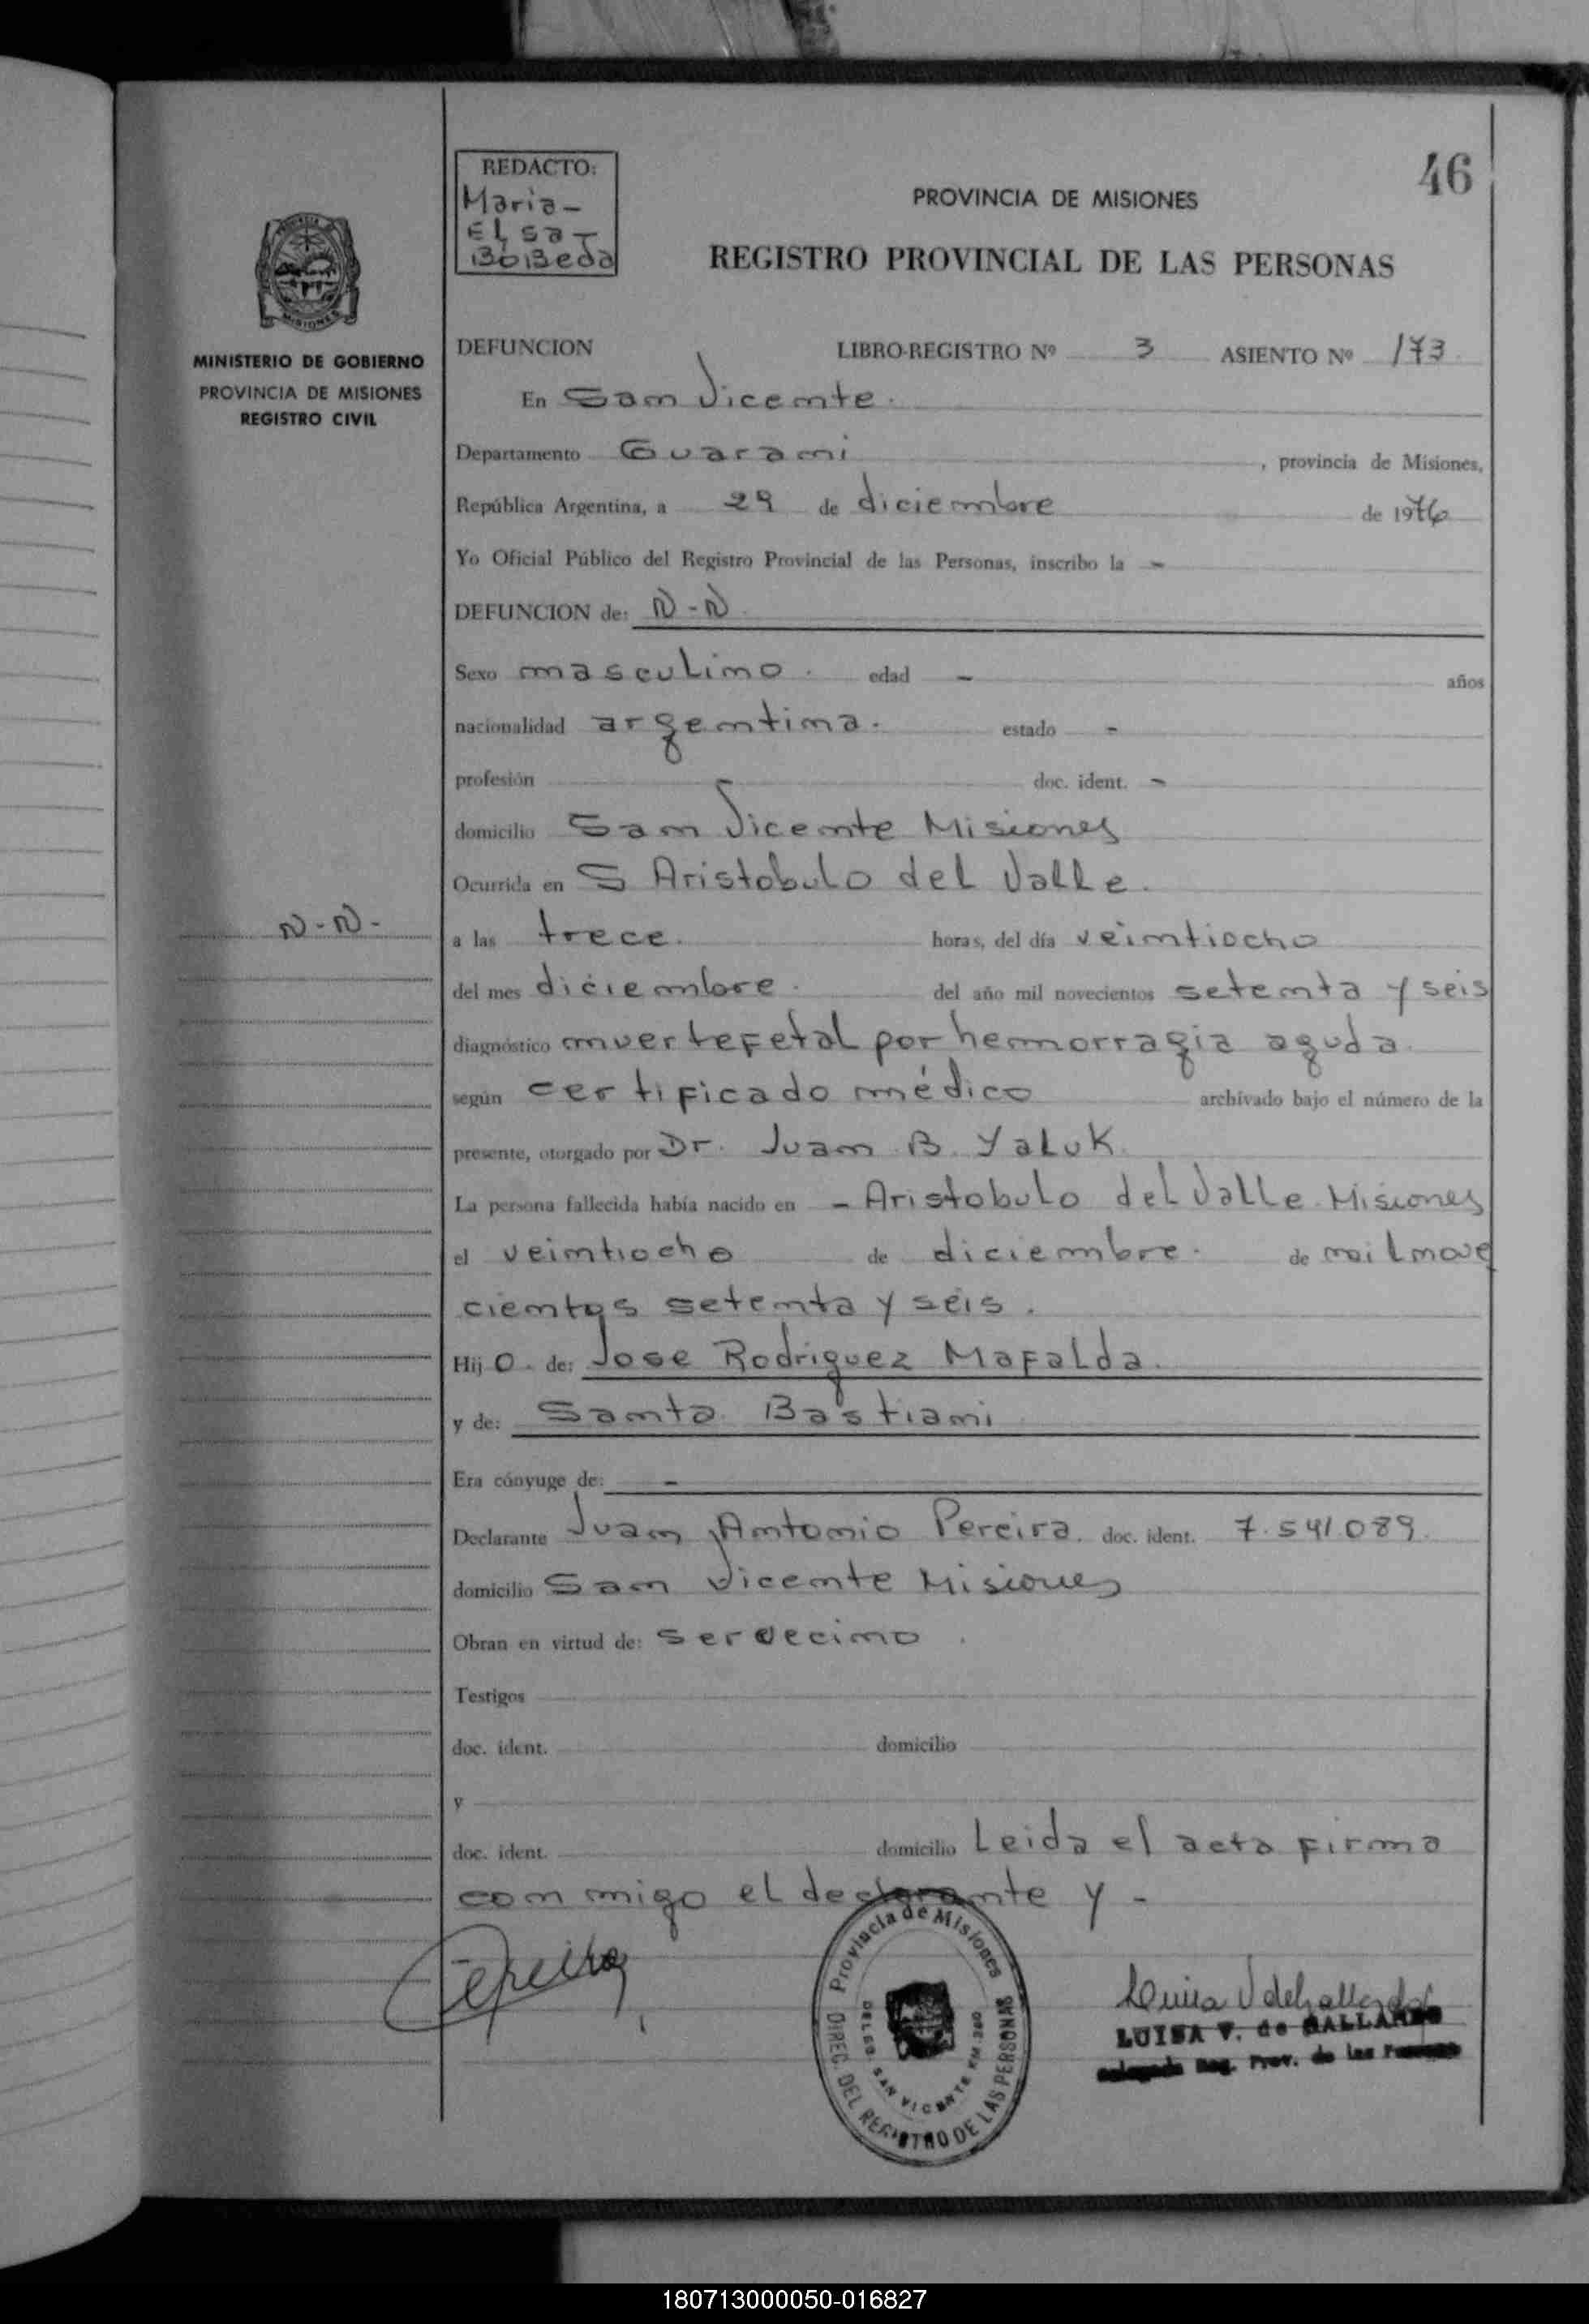 46
REDACTO:
Maria-
Elsa-
BoBeda
PROVINCIA DE MISIONES
REGISTRO PROVINCIAL DE LAS PERSONAS
MISIONES
MINISTERIO DE GOBIERNO
PROVINCIA DE MISIONES
REGISTRO CIVIL
DEFUNCION LIBRO-REGISTRO Nº 3 ASIENTO Nº 173
En San Vicente.
Departamento Guarani , provincia de Misiones,
República Argentina, a 29 de diciembre de 1976
Yo Oficial Público del Registro Provincial de las Personas, inscribo la -
DEFUNCION de: N-N
Sexo masculino. edad - años
nacionalidad argentina. estado -
profesión doc. ident. -
domicilio San Vicente Misiones
Ocurrida en S Aristobulo del Valle.
N-N-
a las trece. horas, del día veintiocho
del mes diciembre. del año mil novecientos setenta y seis
diagnóstico muerte fetal por hemorragia aguda.
según certificado médico archivado bajo el número de la
presente, otorgado por Dr. Juan B. Yaluk
La persona fallecida había nacido en - Aristobulo del Valle Misiones
el veintiocho de diciembre. de mil nove
cientos setenta y seis.
Hijo de: Jose Rodriguez Mafalda.
y de: Santa Bastiani
Era cónyuge de: -
Declarante Juan Antonio Pereira. doc. ident. 7.541.089
domicilio San Vicente Misiones
Obran en virtud de: ser vecino.
Testigos
doc. ident. domicilio
y
doc. ident. domicilio Leida el acta firma
con migo el declarante y -
Provincia de Misiones
DIREC. DEL REGISTRO DE LAS PERSONAS
DELEG. SAN VICENTE KM.
LUISA V. de GALLARDO
Reg. Prov. de las Personas
180713000050-016827